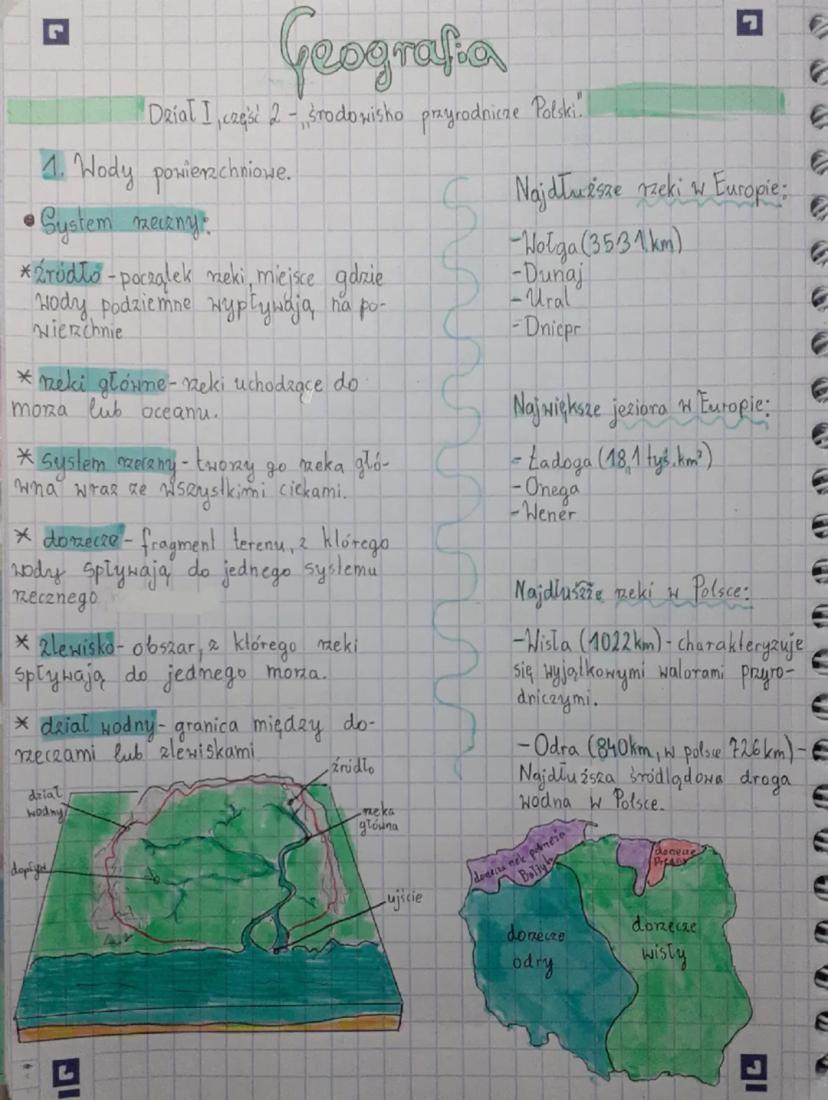 Geografia
Dział I, część 2 - „środowisko przyrodnicze Polski."
1. Wody powierzchniowe.
• System rzeczny:
* źródło - początek rzeki, miejsce gdzie
wody podziemne wypływają na po-
wierzchnie
* rzeki główne - rzeki uchodzące do
morza lub oceanu.
* system rzeczny - tworzy go rzeka głó-
wna wraz ze wszystkimi ciekami.
* dorzecze - fragment terenu, z którego
wody spływają do jednego systemu
rzecznego
* zlewisko - obszar, z którego rzeki
spływają do jednego morza.
* dział wodny - granica między do-
rzeczami lub zlewiskami
źródło
dział
wodny
rzeka
główna
dopływ
ujście
Najdłuższe rzeki w Europie:
- Wołga (3531km)
- Dunaj
- Ural
- Dniepr
Największe jeziora w Europie:
- Ładoga (18,1 tyś. km²)
- Onega
- Wener
Najdłuższe rzeki w Polsce:
- Wisła (1022km) - charakteryzuje
się wyjątkowymi walorami przyro-
dniczymi.
- Odra (840km, w polsce 726km) -
Najdłuższa śródlądowa droga
wodna w Polsce.
dorzecze rzek
Bałtyku
dorzecze
dorzecze
odry
dorzecze
wisły